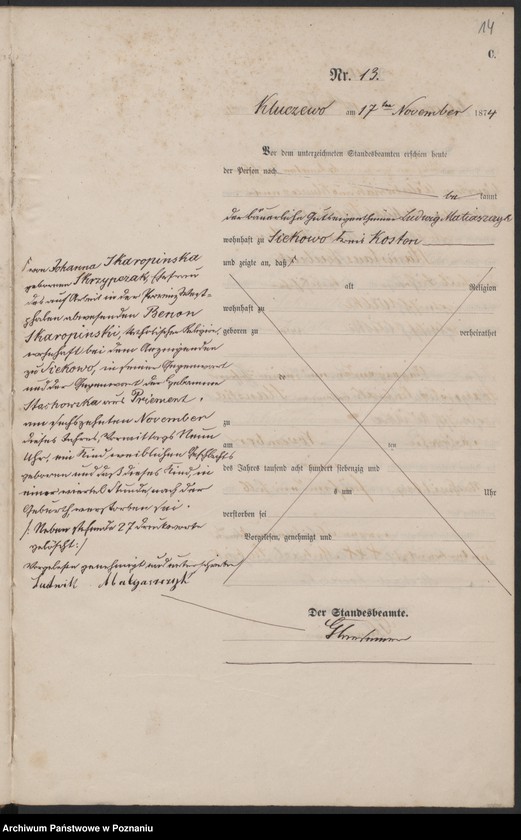 14
C.
Nr. 13.
Kluczewo am 17ten November 1874
Vor dem unterzeichneten Standesbeamten erschien heute
der Person nach
be kannt
der bäuerliche Gutseigenthümer Ludwig Matiaszczyk
wohnhaft zu Siekowo Kreis Kosten
und zeigte an, daß
alt Religion
wohnhaft zu
geboren zu verheirathet
de
zu
am ten
des Jahres tausend acht hundert siebenzig und
s um Uhr
verstorben sei
Vorgelesen, genehmigt und
von Johanna Skaropinska
geborenen Skrzypczak, Ehefrau
des auf Arbeit in der Provinz West-
phalen abwesenden Benon
Skaropinski, katholischer Religion,
wohnhaft bei dem Anzeigenden
zu Siekowo, in seiner Gegenwart
und der Gegenwart der Hebamme
Stachowska aus Priement.
am sechszehnten November
dieses Jahres, Vormittags Neun
Uhr, ein Kind, weiblichen Geschlechts
geboren und daß dieses Kind, in
einer viertel Stunde, nach der
Geburth, verstorben sei.
/: Nebenstehende 27 Druckworte
gelöscht :/
Vorgelesen genehmigt und unterschrieben
Ludwik Matyaszczyk
Der Standesbeamte.
Archiwum Państwowe w Poznaniu